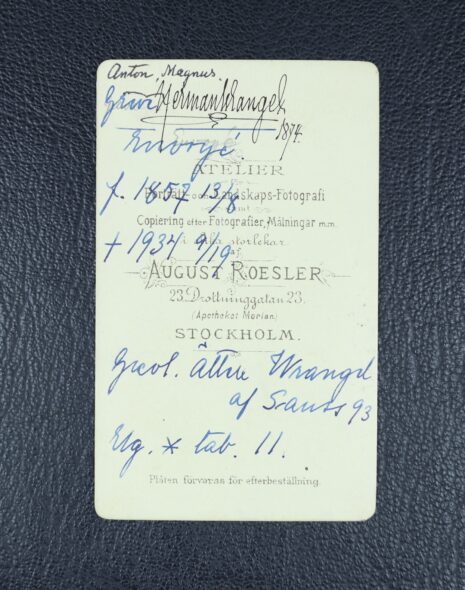 Anton, Magnus.
Greve Herman Wrangel
1874.
Envoyé.
ATELIER
för
f. 1857 13/8
Porträtt- och Landskaps-Fotografi
samt
Copiering efter Fotografier, Målningar m.m.
i olika storlekar
† 1934 9/10
AUGUST ROESLER
23. Drottninggatan 23.
(Apotheket Morian)
STOCKHOLM.
Grevl. ätten Wrangel
af Sauss 93
Elg. * tab. 11.
Plåten förvaras för efterbeställning.